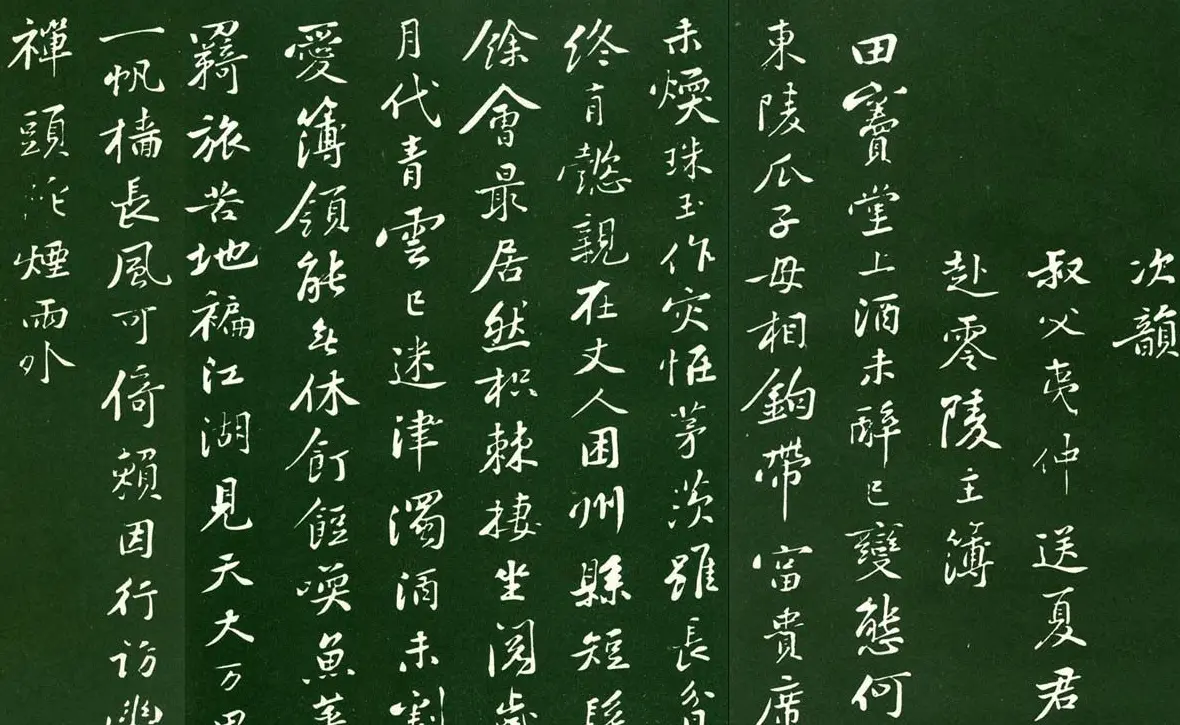 次韻
叔父夷仲送夏君
赴零陵主簿
田竇堂上酒未醉已變態何
東陵瓜子母相鉤帶富貴席
未煖珠玉作灾怪茅茨雖長貧
终有懿親在丈人困州縣短髮
餘會最居然枳棘棲坐閱歲
月代青雲已迷津濁酒未割
愛簿領能無休飣餖喚魚菜
羇旅苦地褊江湖見天大万里
一帆檣長風可倚賴因行訪幽
禪頭陀煙雨外